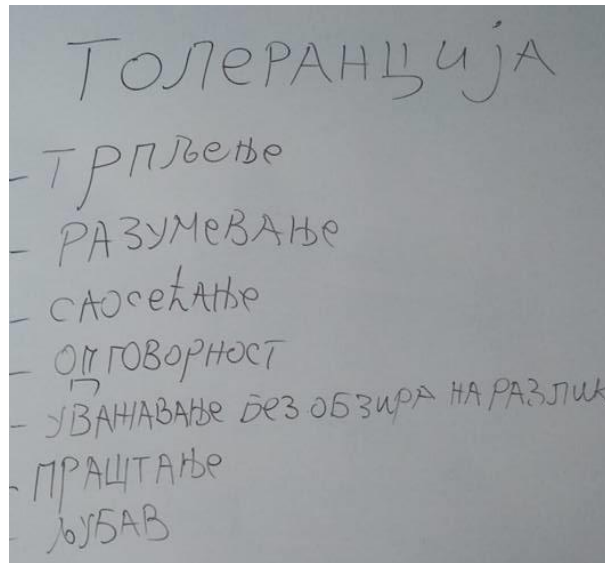 ТОЛЕРАНЦИЈА
- ТРПЉЕЊЕ
- РАЗУМЕВАЊЕ
- САОСЕЋАЊЕ
- ОДГОВОРНОСТ
- УВАЖАВАЊЕ БЕЗ ОБЗИРА НА РАЗЛИК
- ПРАШТАЊЕ
- ЉУБАВ